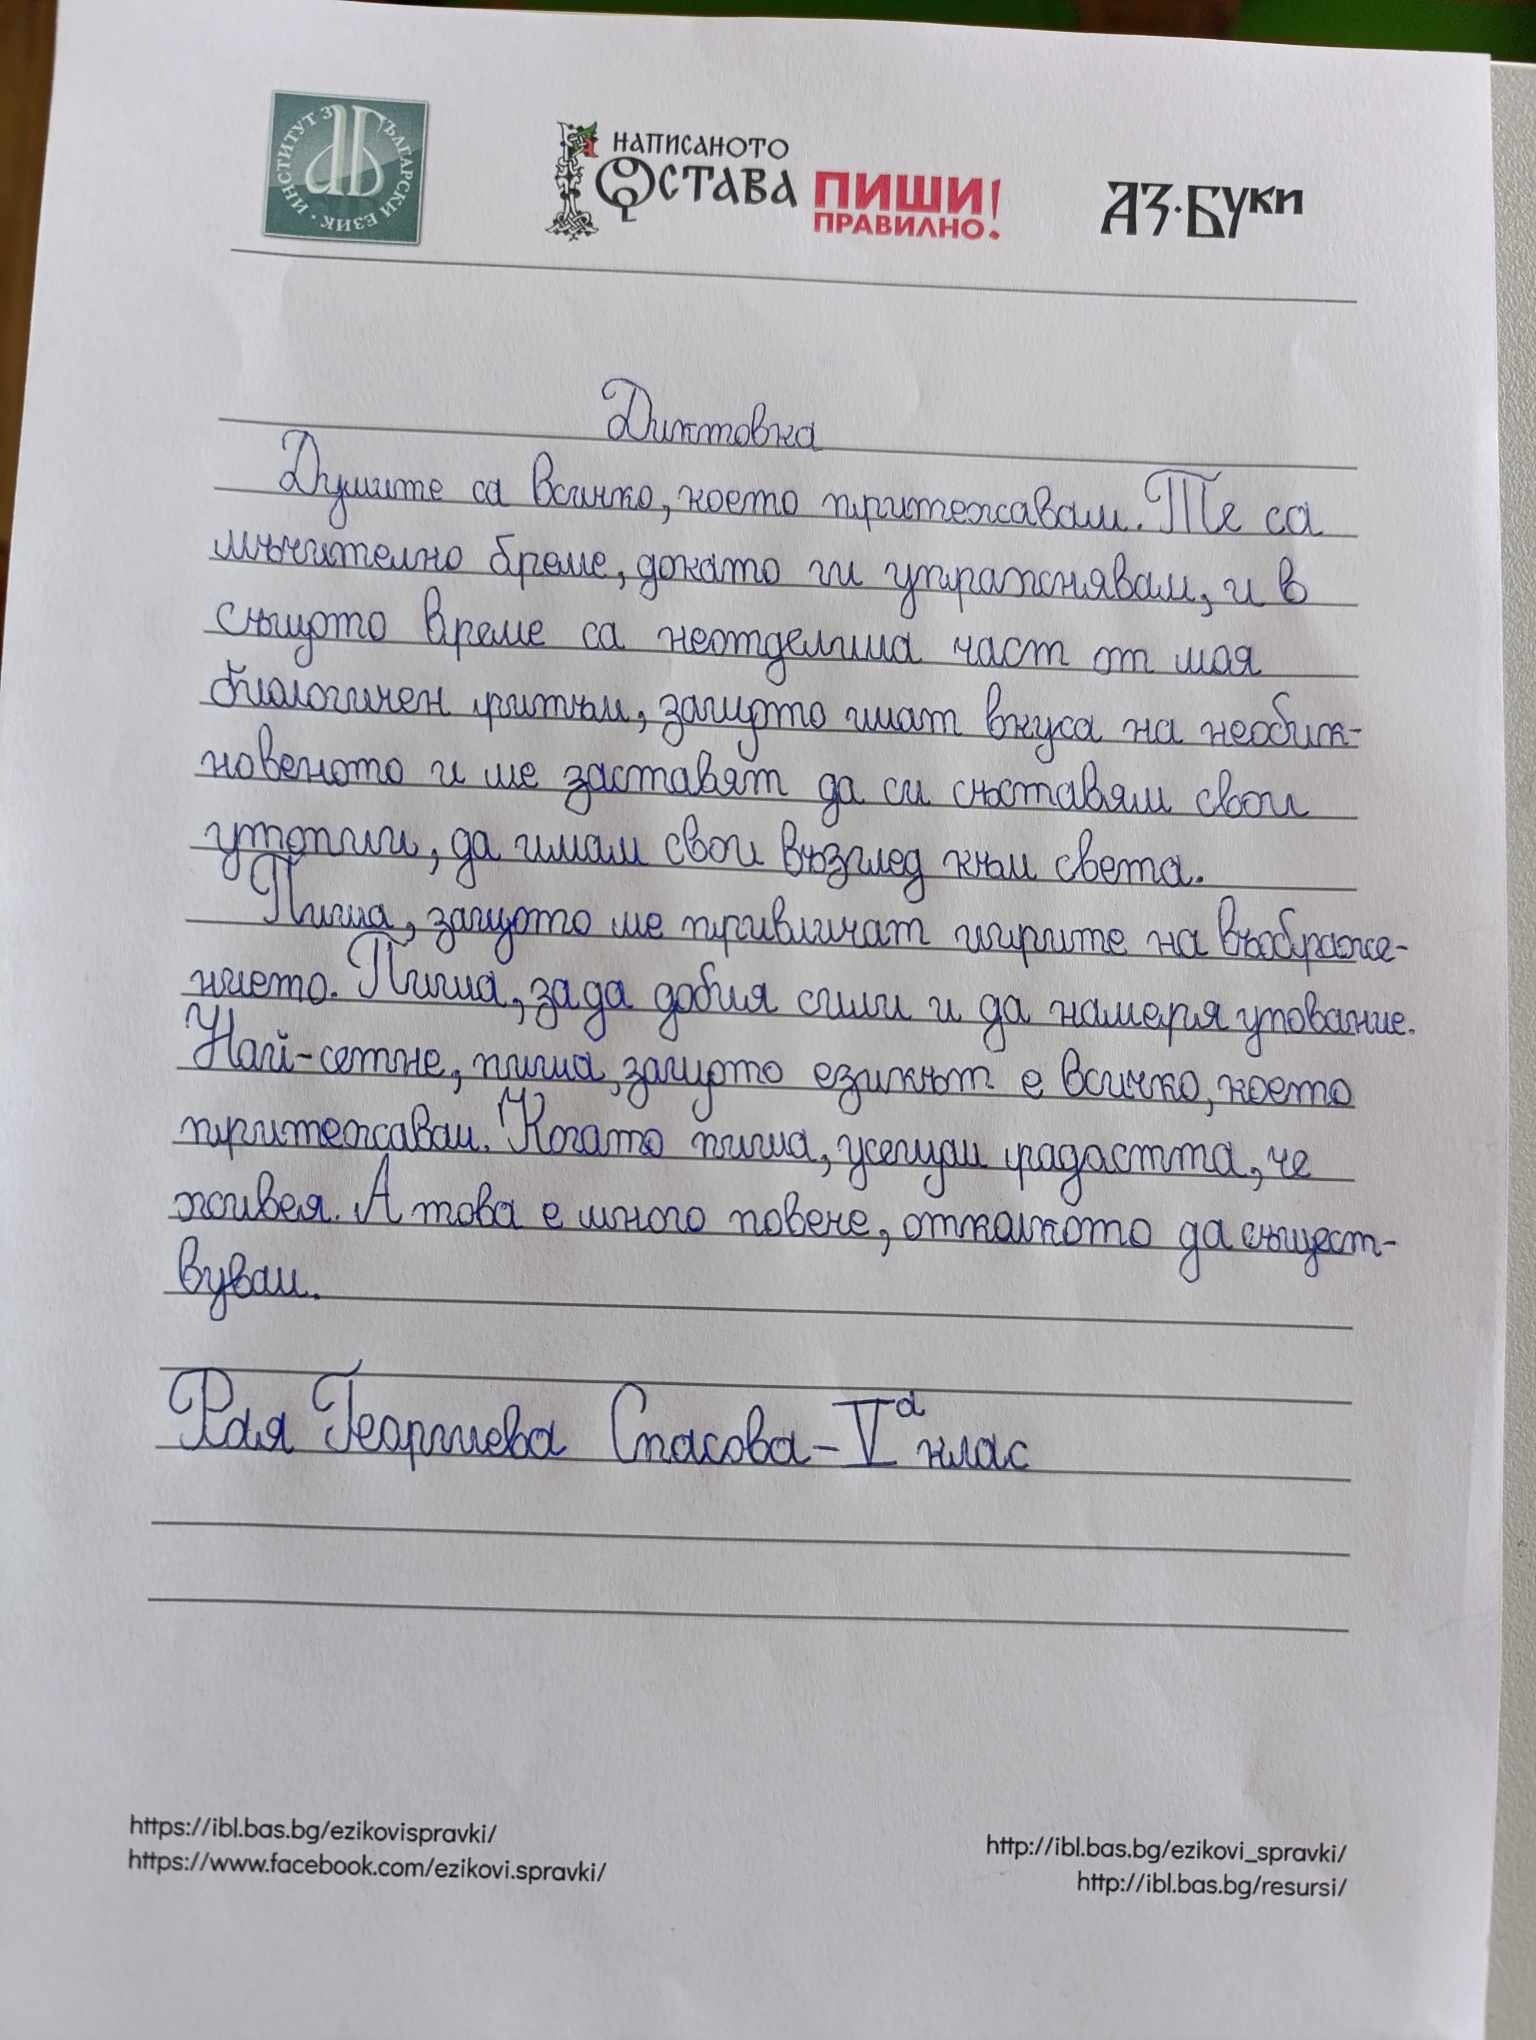 ИНСТИТУТ ЗА БЪЛГАРСКИ ЕЗИК
НАПИСАНОТО
ОСТАВА
ПИШИ!
ПРАВИЛНО.
АЗ·БУКИ
Диктовка
Думите са всичко, което притежавам. Те са
мъчително бреме, докато ги упражнявам, и в
същото време са неотделима част от моя
биологичен ритъм, защото имат вкуса на необик-
новеното и ме заставят да си съставям свои
утопии, да имам свои възглед към света.
Пиша, защото ме привличат ширите на въображе-
нието. Пиша, за да добия сили и да намеря упование.
Най-сетне, пиша, защото езикът е всичко, което
притежавам. Когато пиша, усещам радостта, че
живея. А това е много повече, отколкото да същест-
вувам.
Рая Георгиева Спасова - V а клас
https://ibl.bas.bg/ezikovispravki/
https://www.facebook.com/ezikovi.spravki/
http://ibl.bas.bg/ezikovi_spravki/
http://ibl.bas.bg/resursi/